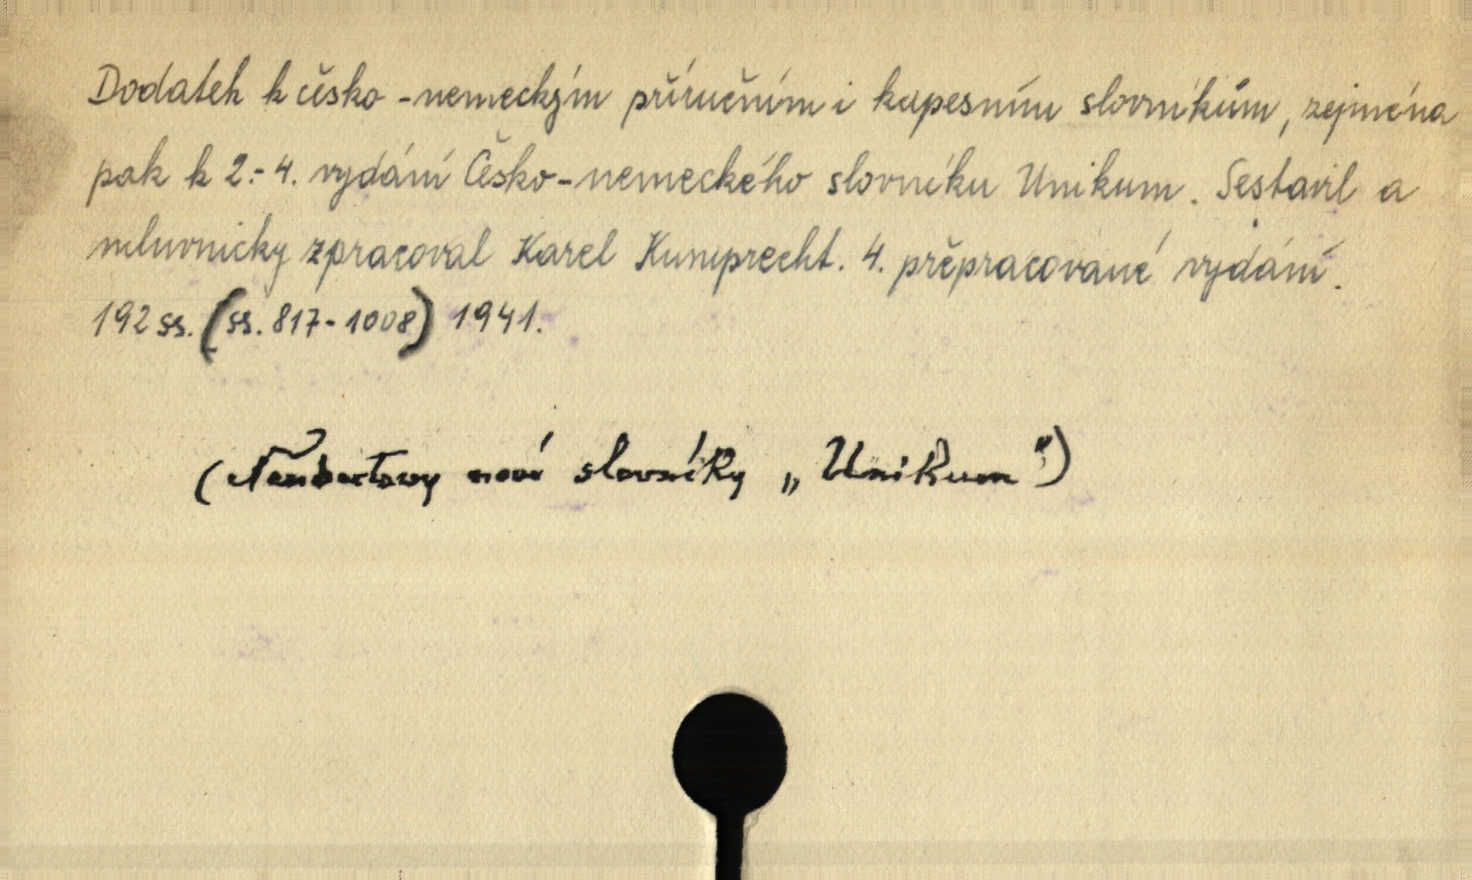 Dodatek k česko-nemeckým příručním i kapesním slovníkům, zejména
pak k 2.-4. vydání Česko-nemeckého slovníku Unikum. Sestavil a
mluvnicky zpracoval Karel Kumprecht. 4. přepracované vydání.
192 ss. (ss. 817-1008) 1941.
(Neubertovy nové slovníky „Unikum")